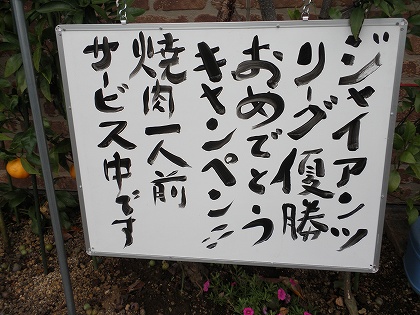 ジャイアンツ
リーグ優勝
おめでとう
キャンペーン!!
焼肉一人前
サービス中です